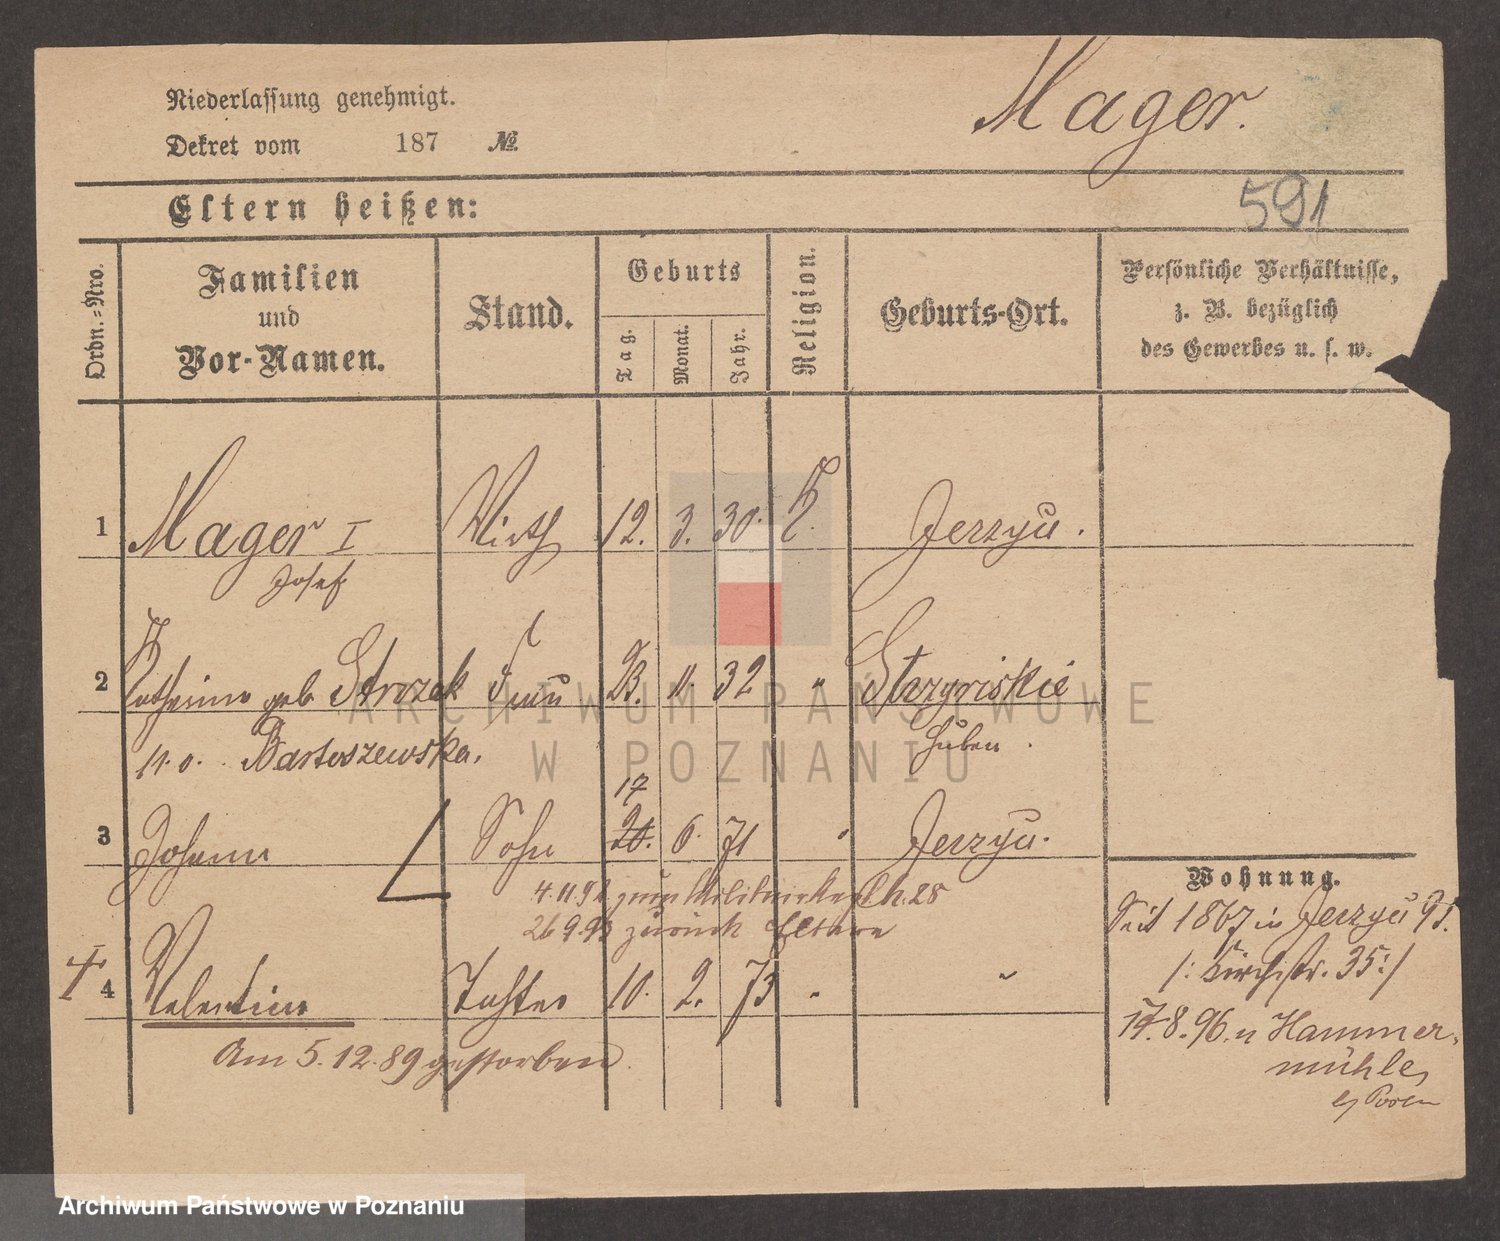 Niederlassung genehmigt.
Mager.
Dekret vom 187 №
Eltern heißen:
591
Ordn.-Nro.
Familien
und
Vor-Namen.
Stand.
Geburts
Tag.
Monat.
Jahr.
Religion.
Geburts-Ort.
Persönliche Verhältnisse,
z. B. bezüglich
des Gewerbes u. s. w.
1 Mager I Wirth 12. 3. 30. k. Jerzyce.
Josef
2 Katharina geb Strozek Frau 23. 11. 32 "
Huben.
n. o. Bartoszewska.
17
3 Johann Sohn 20. 6. 71 " Jerzyce.
4.11.92 zum
26.9.93 zurück Eltern
4 Valentine Tochter 10. 2. 73 " "
Am 5.12.89 gestorben.
Wohnung.
Seit 1867 in Jerzyce 91.
/: Kirchstr. 35 :/
17.8.96. n Hammer-
mühle,
b/ Posen
ARCHIWUM PAŃSTWOWE
W POZNANIU
Archiwum Państwowe w Poznaniu